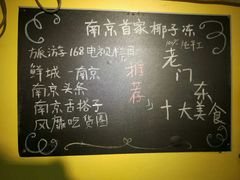 南京首家椰子冻
100%纯手工
旅游168电视栏目
鲜城-南京
南京头条
南京吉搭子
风靡吃货圈
推荐
老门东
十大美食